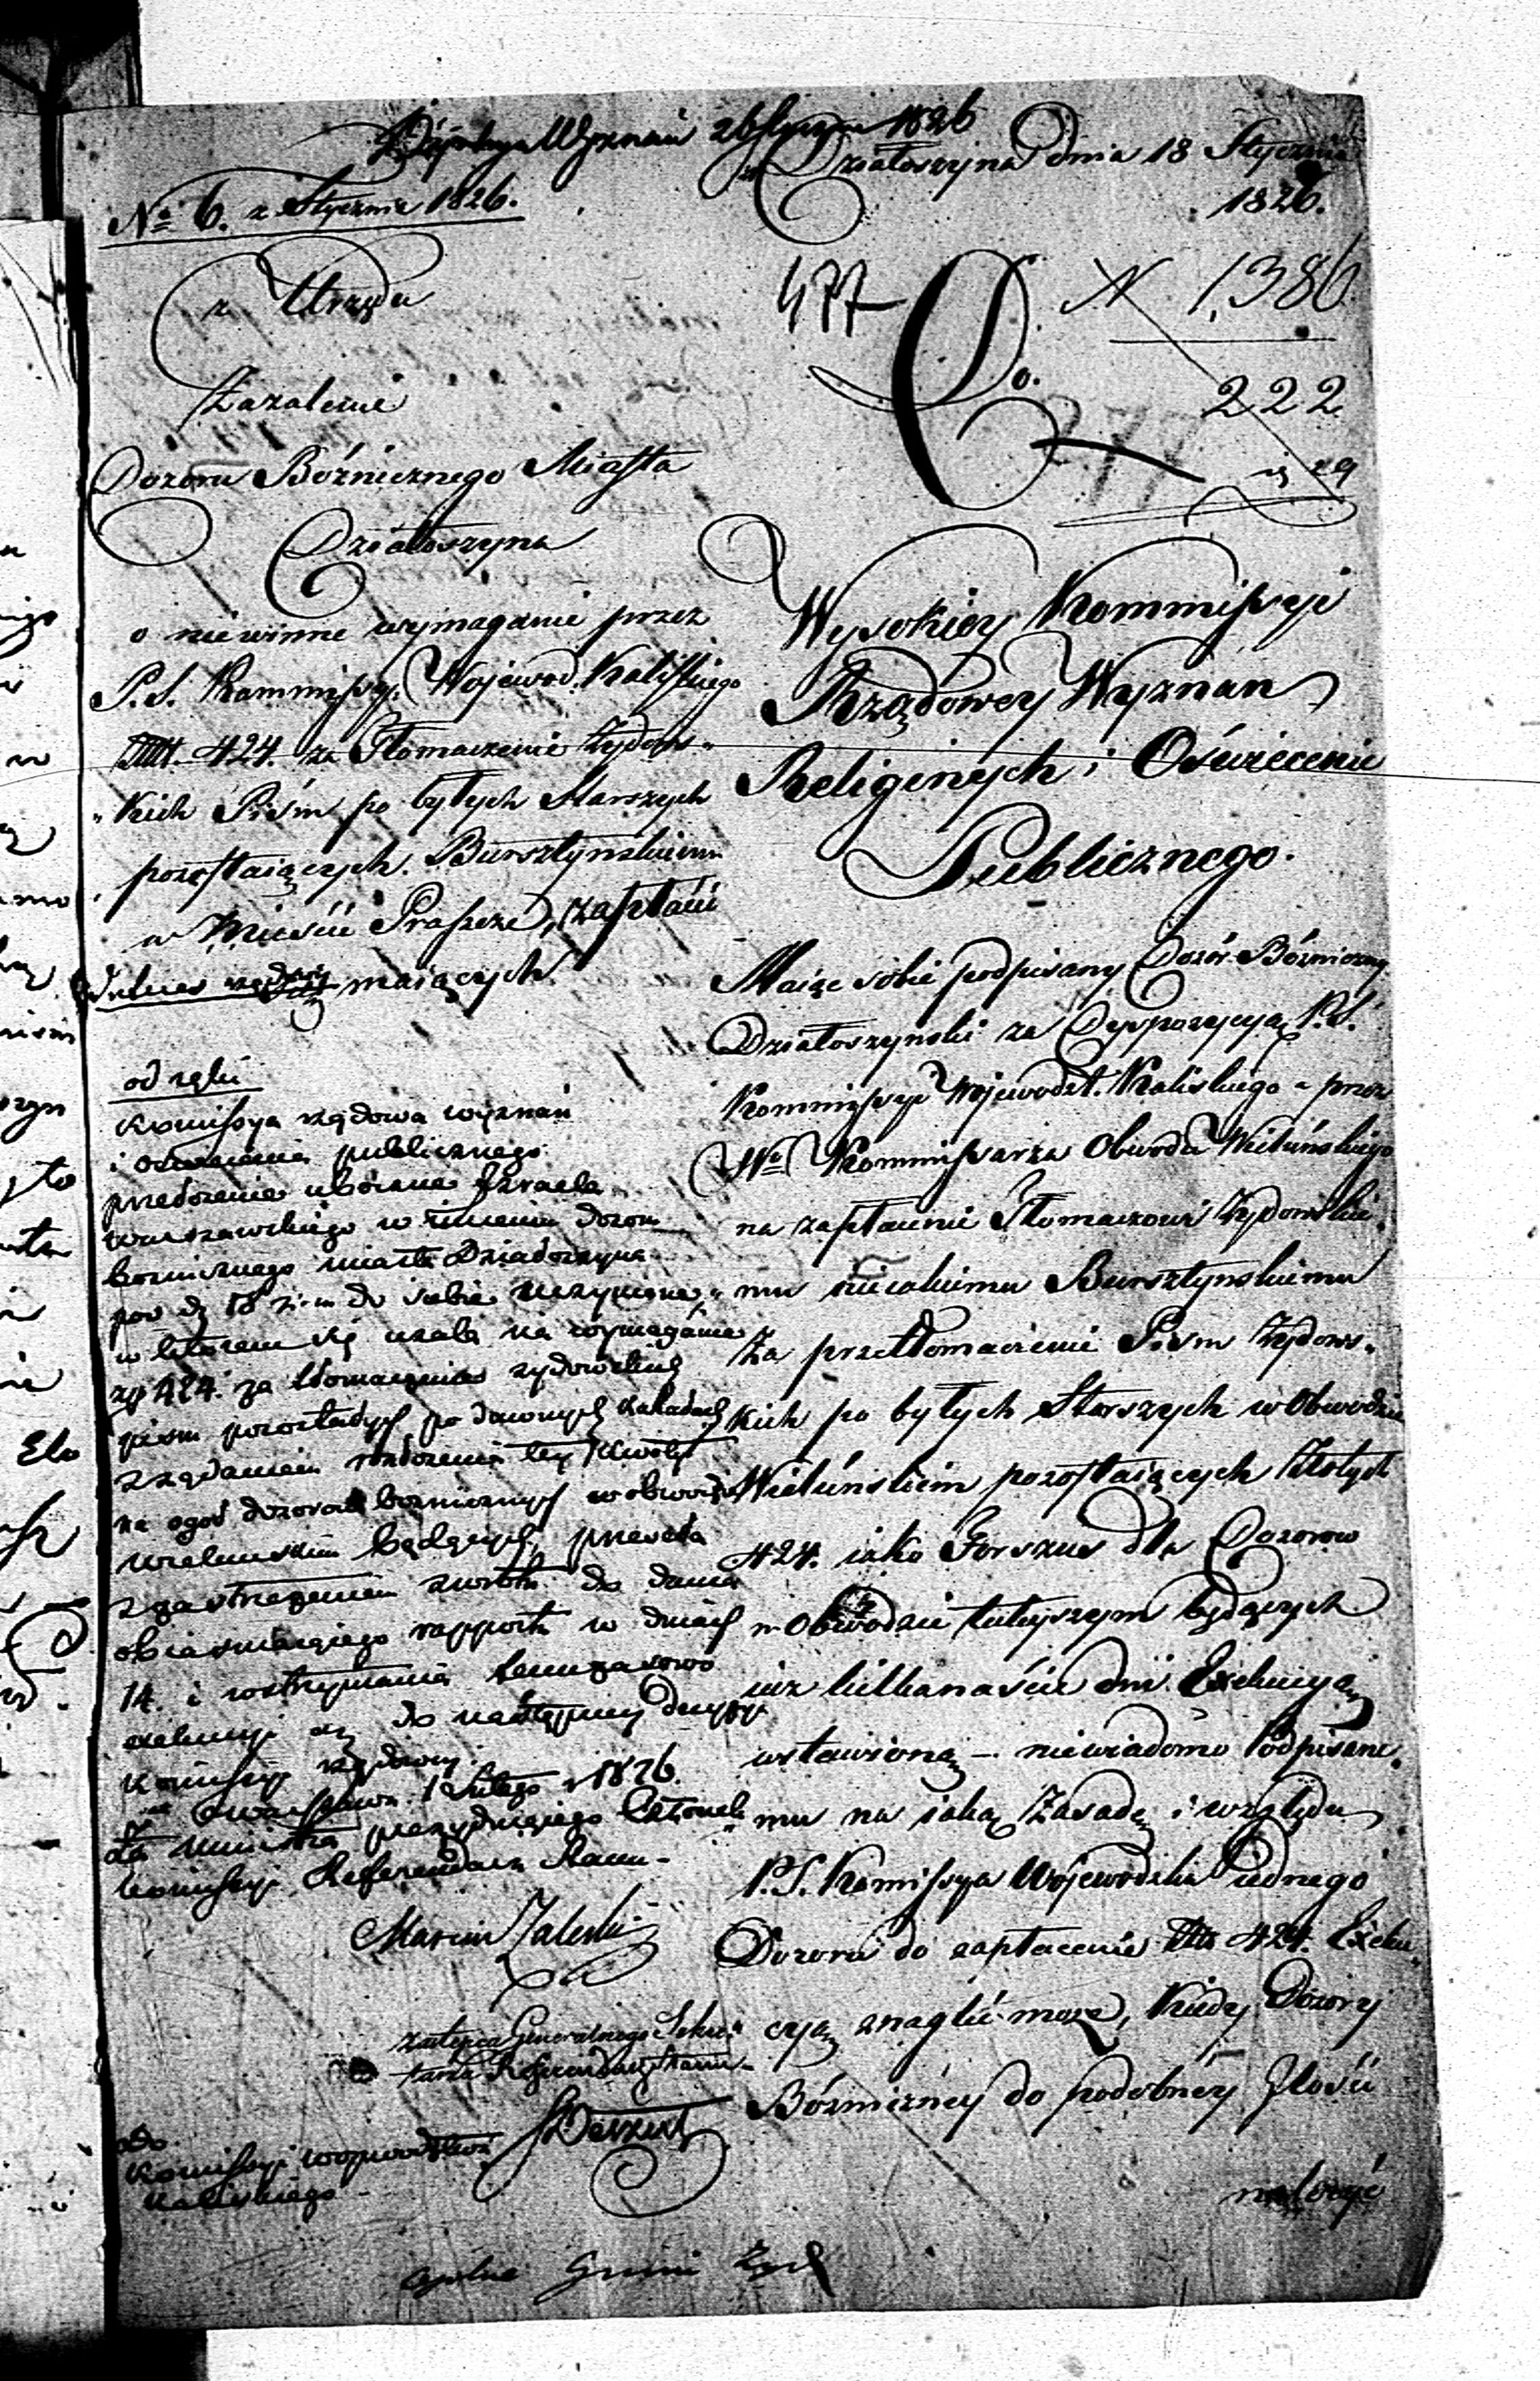 Wyznań 26 Stycznia 1826
w Działoszynie Dnia 18 Stycznia
1826.
No 6. z Stycznia 1826.
z Urzędu
Zażalenie
Dozoru Bóżnicznego Miasta
Działoszyna
o niewinne wymaganie przez
P. S. Kommissyą Wojewod. Kaliskiego
424. za Tłomaczenie Żydows„
„kich Pism po byłych Starszych
pozostaiących. Bursztynskiemu
w Mieście Praszce, zapłacić
maiących.
477
Do.
N 1,386
222
Wysokiey Kommissyi
Rządowey Wyznań
Religinych i Oświecenia
Publicznego.
Maiąc sobie podpisany Dozór Bóżniczny
Działoszynski za Dyspozycyą P. S.
Kommissyi Wojewodzt. Kaliskiego - przez
Wo Kommissarza Obwodu Wieluńskiego
na zapłacenie Tłomaczowi Żydowskie„
„mu nieiakiemu Bursztynskiemu
Za przetłomaczenie Pism Żydows„
kich po byłych Starszych w Obwodzie
Wieluńskiem pozostaiących Złotych
424. iako Forszus dla Dozorow
w Obwodzie tuteyszym będących
iuż kilkanaście dni Exekucyą
wstawioną – niewiadomo Podpisane„
„mu na iaką Zasadę i względu
P. S. Komissya Wojewodzka iednego
Dozoru do zapłacenia 424. Exeku„
cyą znaglić może, Kiedy Dozory
Bóżniczney do podobney Ilości
należyć
od ręki
Komissya rządowa wyznań
i oświecenia publicznego
przełożenie uboczne Izraela
Warszawskiego w imieniu dozoru
bozniczego miasta Działoszyna
pod d. 18 z. m. do siebie uczynione,
w którem się użala na wymaganie
zp 424. za tłomaczenie żydowskich
pism pozostałych po dawnych Kahałach
z żądaniem rozłożenia tey kwoty
na ogół dozorów bozniczych w obwodzie
wieluńskim będących, przesyła
z zastrzeżeniem zwrotu do dania
obiaśniaiącego rapportu w dniach
14. i wstrzymania tymczasowo
exekucyi aż do następney decyzyi
Komissyi rządowey.
w Warszawie 1 Lutego 1826.
Ministra prezyduiącego Członek
Komissyi Referendarz Stanu
Marcin Zaleski
zastępca Generalnego Sekre„
tarza Referendarz Stanu
do
Komissyi woiewodztwa
Kaliskiego